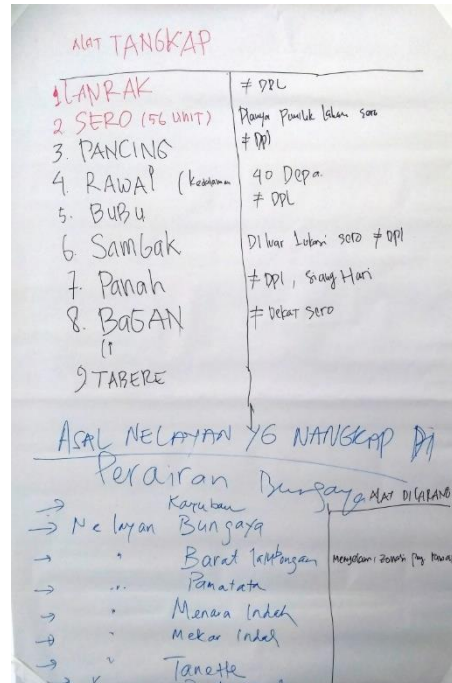 ALAT TANGKAP
1 LANRAK ≠ DPL
2 SERO (56 UNIT) Hanya Pemilik lahan sero
≠ DPl
3. PANCING
4. RAWAI (Kedalaman 40 Depa
≠ DPL
5. BUBU
6. Sambak Diluar lokasi sero ≠ DPl
7. Panah ≠ DPl, Siang Hari
8. BaGAN ≠ Dekat Sero
9 TABERE
ASAL NELAYAN YG NANGKAP Di
Perairan Bungaya
ALAT DILARANG
→ Kayuban
→ Nelayan Bungaya
→ " Barat lambongan
→ " Pamatata
→ " Menara Indah
→ " Mekar Indah
→ " Tanette